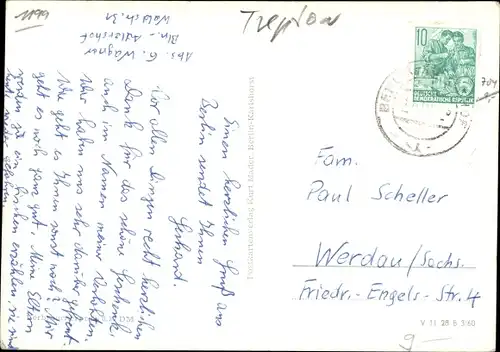 1199
Treptow
Abs. G. Wagner
Bln.-Adlershof
Waldstr. 31
Einen herzlichen Gruß aus
Berlin sendet Ihnen
Gerhard.
Vor allen Dingen recht herzlichen
Dank für das schöne Geschenk,
auch im Namen meiner Verlobten.
Wir haben uns sehr darüber gefreut.
Wie geht es Ihnen sonst noch? Mir
geht es noch ganz gut. Meine Eltern
werden ja ein bischen erzählen, sie sind
Postkartenverlag Kurt Mader, Berlin-Karlshorst
10
DEUTSCHE
DEMOKRATISCHE REPUBLIK
Fam.
Paul Scheller
Werdau/Sachs.
Friedr.-Engels-Str. 4
V 11 28 B 3/60
9-